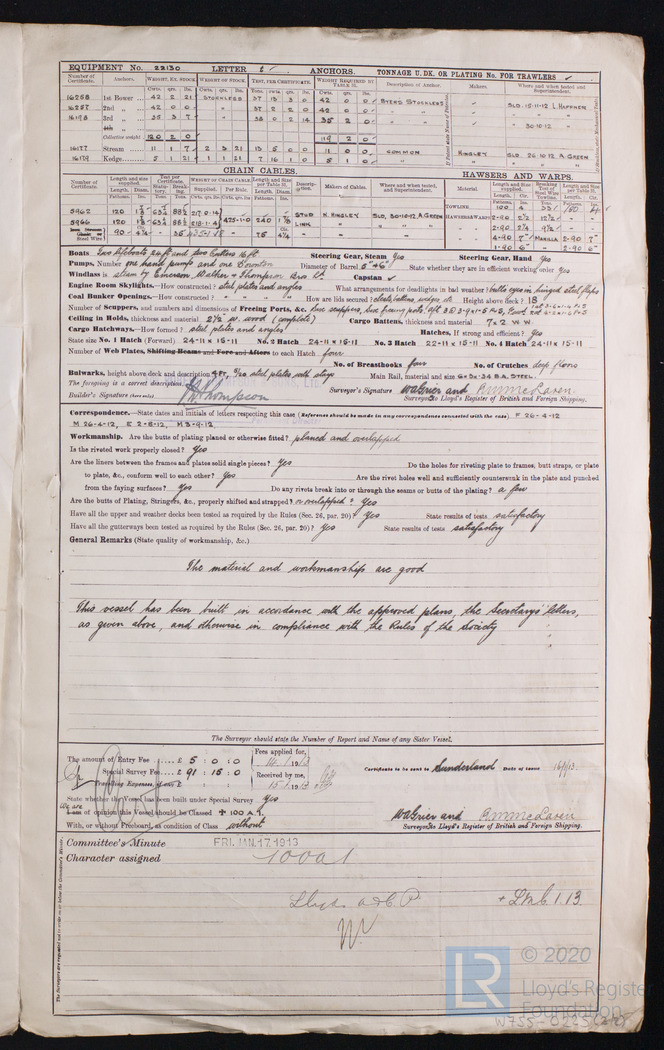 EQUIPMENT No. 22130 LETTER ANCHORS. TONNAGE U. DK. OR PLATING No. FOR TRAWLERS
Number of Certificate. Anchors. WEIGHT, EX. STOCK. WEIGHT OF STOCK. TEST, PER CERTIFICATE. WEIGHT REQUIRED BY TABLE 31. Description of Anchor. Makers. Where and when tested and Superintendent.
16258 1st Bower 42 2 21 STOCKLESS 37 13 3 0 42 0 0 BYERS STOCKLESS SLD. 15-11-12 L. HAFFNER
16257 2nd „ 42 0 0 37 2 2 0 42 0 0
16198 3rd „ 35 3 7 35 2 0 30-10-12
4th „
Collective weight 120 2 0 119 2 0
16177 Stream 11 1 7 2 3 21 13 5 0 0 11 0 0 COMMON KINGLEY SLD 26-10-12 A. GREEN
16179 Kedge 5 1 21 1 1 21 7 16 1 0 5 1 0
CHAIN CABLES. HAWSERS AND WARPS.
Number of Certificate. Length and size supplied. Test per Certificate. WEIGHT OF CHAIN CABLE. Length and Size per Table 31. Description. Makers of Cables. Where and when tested, and Superintendent. Material. Length and Size supplied. Breaking Test of Steel Wire Towline. Length and Size per Table 31.
5962 120 STUD N. HINGLEY SLD, 30-10-12 A GREEN TOWLINE
5966 120 240 LINK HAWSERS & WARPS
Steel Wire 90 75 4-90 7" MANILLA 2-90 7"
2-90 6" 2-90 6"
Boats Two lifeboats 24 ft and two cutters 16 ft Steering Gear, Steam Yes Steering Gear, Hand Yes
Pumps, Number one hand pump and one Downton Diameter of Barrel 5" & 6" State whether they are in efficient working order Yes
Windlass is steam by Emerson Walker & Thompson Bros Ld Capstan
Engine Room Skylights.—How constructed? steel plates and angles What arrangements for deadlights in bad weather? bulls eyes in hinged steel flaps
Coal Bunker Openings.—How constructed? „ „ „ How are lids secured? cleats, battens, wedges etc Height above deck? 18"
Number of Scuppers, and numbers and dimensions of Freeing Ports, &c.
Ceiling in Holds, thickness and material 2½ w. wood (complete) Cargo Battens, thickness and material 7 x 2 W W.
Cargo Hatchways.—How formed? steel plates and angles Hatches, If strong and efficient? Yes
State size No. 1 Hatch (Forward) 24-11 x 15-11 No. 2 Hatch 24-11 x 15-11 No. 3 Hatch 22-11 x 15-11 No. 4 Hatch 24-11 x 15-11
Number of Web Plates, Shifting Beams and Fore and Afters to each Hatch four
No. of Breasthooks four No. of Crutches deep floors
Bulwarks, height above deck and description 4 Ft, 5/20 steel plates with stays Main Rail, material and size STEEL
The foregoing is a correct description.
Builder's Signature (here only) Thompson Surveyor's Signature WaGrier and R.M. McLaren
Surveyors to Lloyd's Register of British and Foreign Shipping.
Correspondence.—State dates and initials of letters respecting this case (Reference should be made in any correspondence connected with the case). F 26-4-12
M 26-4-12, E 2-5-12, M 3-9-12
Workmanship. Are the butts of plating planed or otherwise fitted? planed and overlapped
Is the riveted work properly closed? Yes
Are the liners between the frames and plates solid single pieces? Yes Do the holes for riveting plate to frames, butt straps, or plate
to plate, &c., conform well to each other? Yes Are the rivet holes well and sufficiently countersunk in the plate and punched
from the faying surfaces? Yes Do any rivets break into or through the seams or butts of the plating? a few
Are the butts of Plating, Stringers, &c., properly shifted and strapped? or overlapped? Yes
Have all the upper and weather decks been tested as required by the Rules (Sec. 26, par. 20)? Yes State results of tests satisfactory
Have all the gutterways been tested as required by the Rules (Sec. 26, par. 20)? Yes State results of tests satisfactory
General Remarks (State quality of workmanship, &c.)
The material and workmanship are good
This vessel has been built in accordance with the approved plans, the Secretary's letters,
as given above, and otherwise in compliance with the Rules of the Society
The Surveyor should state the Number of Report and Name of any Sister Vessel.
The amount of Entry Fee ..... £ 5 : 0 : 0 Fees applied for, 14/1 1913
Special Survey Fee .... £ 91 : 15 : 0 Received by me, 15.1.1913
Travelling Expenses, if any £
Certificate to be sent to Sunderland Date of issue 16/1/13.
State whether the Vessel has been built under Special Survey Yes
We are of opinion this Vessel should be Classed ✠ 100 A 1.
With, or without Freeboard, as condition of Class without
WaGrier and R.M. McLaren
Surveyors to Lloyd's Register of British and Foreign Shipping.
Committee's Minute FRI. JAN. 17 1913
Character assigned 100A1
Lloyds A & C. P. + LMC 1.13
The Surveyors are requested not to write on or below the Committee's Minute.
© 2020
LR Lloyd's Register
Foundation
W755-0225(2/2)